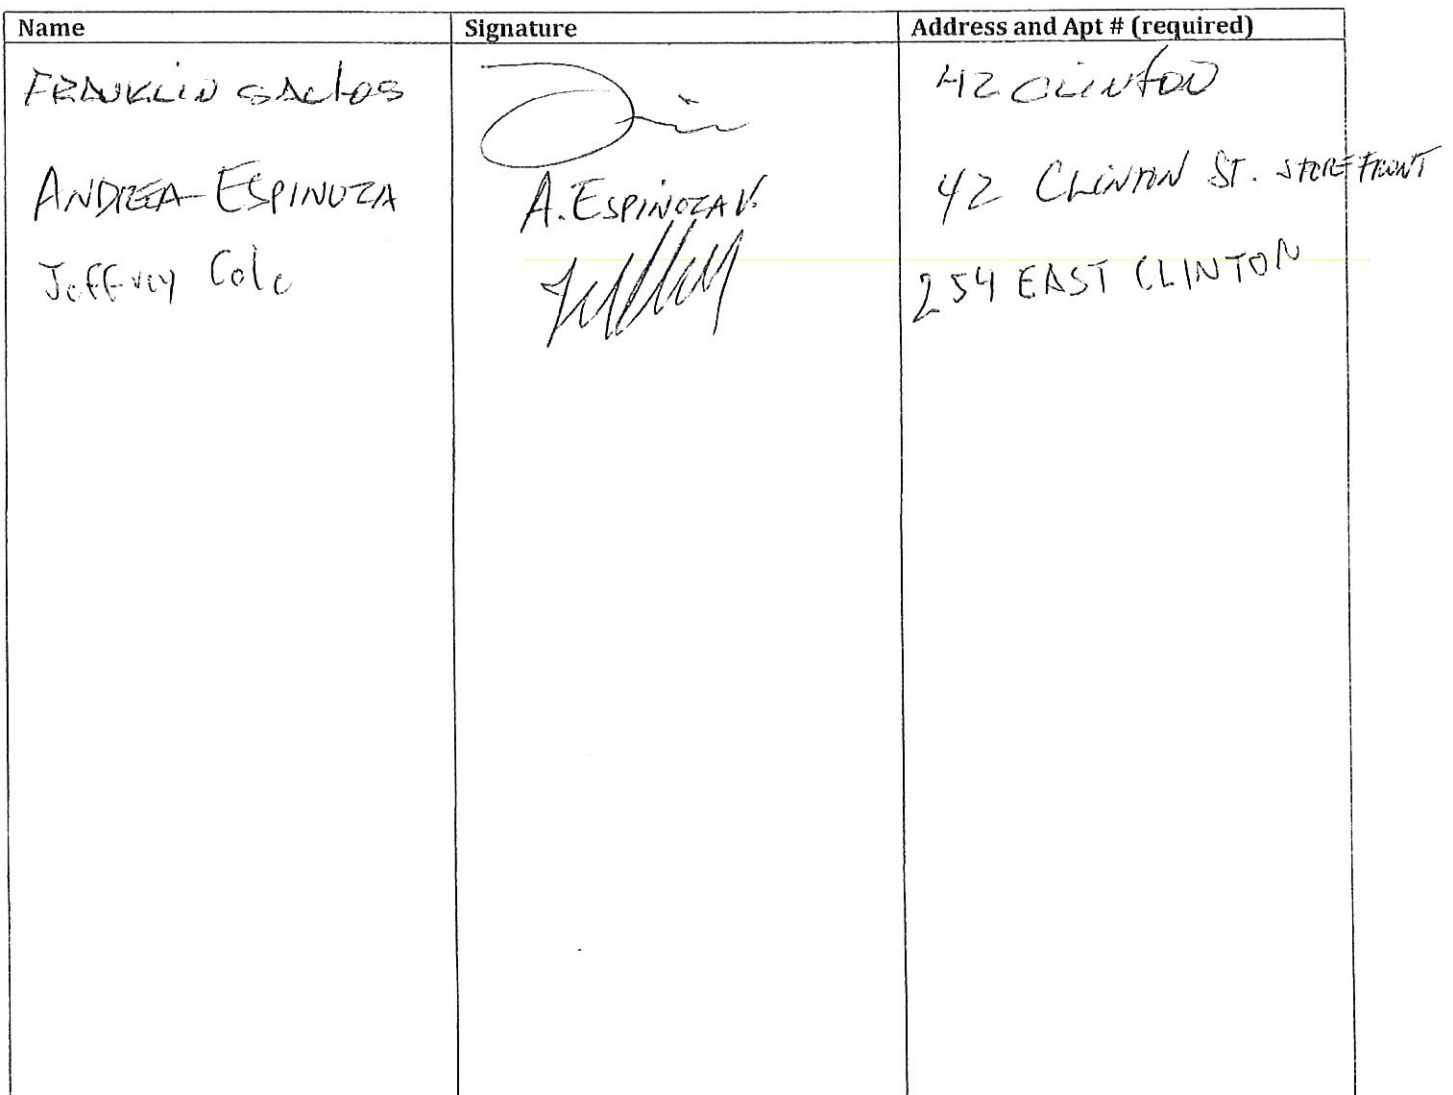 Name Signature Address and Apt # (required)
FRANKLIN 42 CLINTON
ANDREA ESPINOZA A. ESPINOZA V. 42 CLINTON ST. STOREFRONT
Jeffrey Cole 254 EAST CLINTON